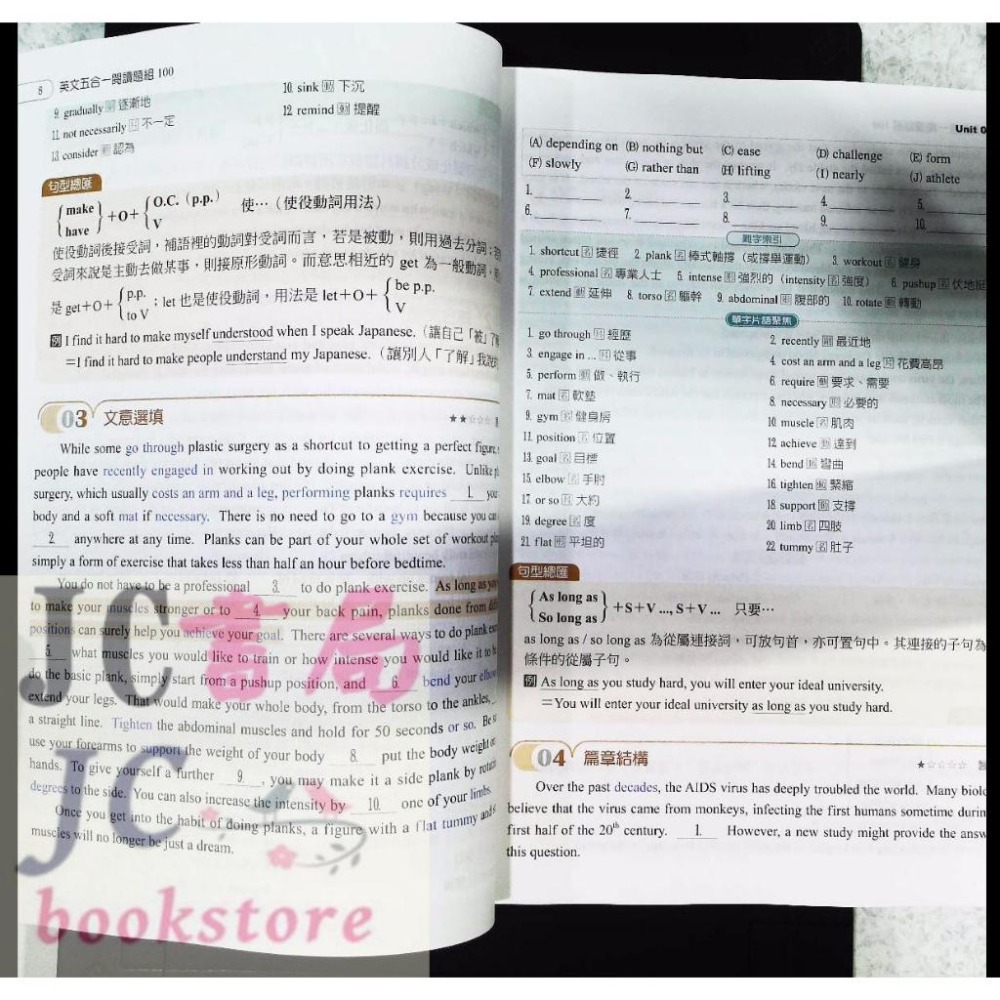 8 英文五合一閱讀題組 100
9. gradually 副 逐漸地 10. sink 動 下沉
11. not necessarily 片 不一定 12. remind 動 提醒
13. consider 動 認為
句型總匯
make
have
+O+
O.C. (p.p.)
V
使…（使役動詞用法）
使役動詞後接受詞，補語裡的動詞對受詞而言，若是被動，則用過去分詞；
受詞來說是主動去做某事，則接原形動詞。而意思相近的 get 為一般動詞，
是 get+O+
p.p.
to V
；let 也是使役動詞，用法是 let+O+
be p.p.
V
例 I find it hard to make myself understood when I speak Japanese.（讓自己「被」了
=I find it hard to make people understand my Japanese.（讓別人「了解」我說
03 文意選填 ★★☆☆☆
While some go through plastic surgery as a shortcut to getting a perfect figure,
people have recently engaged in working out by doing plank exercise. Unlike
surgery, which usually costs an arm and a leg, performing planks requires 1.
body and a soft mat if necessary. There is no need to go to a gym because you
2 anywhere at any time. Planks can be part of your whole set of workout
simply a form of exercise that takes less than half an hour before bedtime.
You do not have to be a professional 3. to do plank exercise. As long as
to make your muscles stronger or to 4. your back pain, planks done from
positions can surely help you achieve your goal. There are several ways to do plank
5. what muscles you would like to train or how intense you would like it to
do the basic plank, simply start from a pushup position, and 6. bend your
extend your legs. That would make your whole body, from the torso to the ankles,
a straight line. Tighten the abdominal muscles and hold for 50 seconds or so.
use your forearms to support the weight of your body 8. put the body weight
hands. To give yourself a further 9. , you may make it a side plank by
degrees to the side. You can also increase the intensity by 10. one of your limbs.
Once you get into the habit of doing planks, a figure with a flat tummy and
muscles will no longer be just a dream.
Unit 0
(A) depending on (B) nothing but (C) ease (D) challenge (E) form
(F) slowly (G) rather than (H) lifting (I) nearly (J) athlete
1. 2. 3. 4. 5.
6. 7. 8. 9. 10.
難字索引
1. shortcut 名 捷徑 2. plank 名 棒式軸撐（或撐舉運動） 3. workout 名 健身
4. professional 名 專業人士 5. intense 形 強烈的（intensity 名 強度） 6. pushup 名 伏地挺
7. extend 動 延伸 8. torso 名 軀幹 9. abdominal 形 腹部的 10. rotate 動 轉動
單字片語聚焦
1. go through 片 經歷 2. recently 副 最近地
3. engage in ... 片 從事 4. cost an arm and a leg 片 花費高昂
5. perform 動 做、執行 6. require 動 要求、需要
7. mat 名 軟墊 8. necessary 形 必要的
9. gym 名 健身房 10. muscle 名 肌肉
11. position 名 位置 12. achieve 動 達到
13. goal 名 目標 14. bend 動 彎曲
15. elbow 名 手肘 16. tighten 動 緊縮
17. or so 片 大約 18. support 動 支撐
19. degree 名 度 20. limb 名 四肢
21. flat 形 平坦的 22. tummy 名 肚子
句型總匯
As long as
So long as
+S+V ..., S+V ... 只要…
as long as / so long as 為從屬連接詞，可放句首，亦可置句中。其連接的子句為
條件的從屬子句。
例 As long as you study hard, you will enter your ideal university.
=You will enter your ideal university as long as you study hard.
04 篇章結構 ★☆☆☆☆
Over the past decades, the AIDS virus has deeply troubled the world. Many
believe that the virus came from monkeys, infecting the first humans sometime
first half of the 20th century. 1. However, a new study might provide the
this question.
JC書局
JC
bookstore